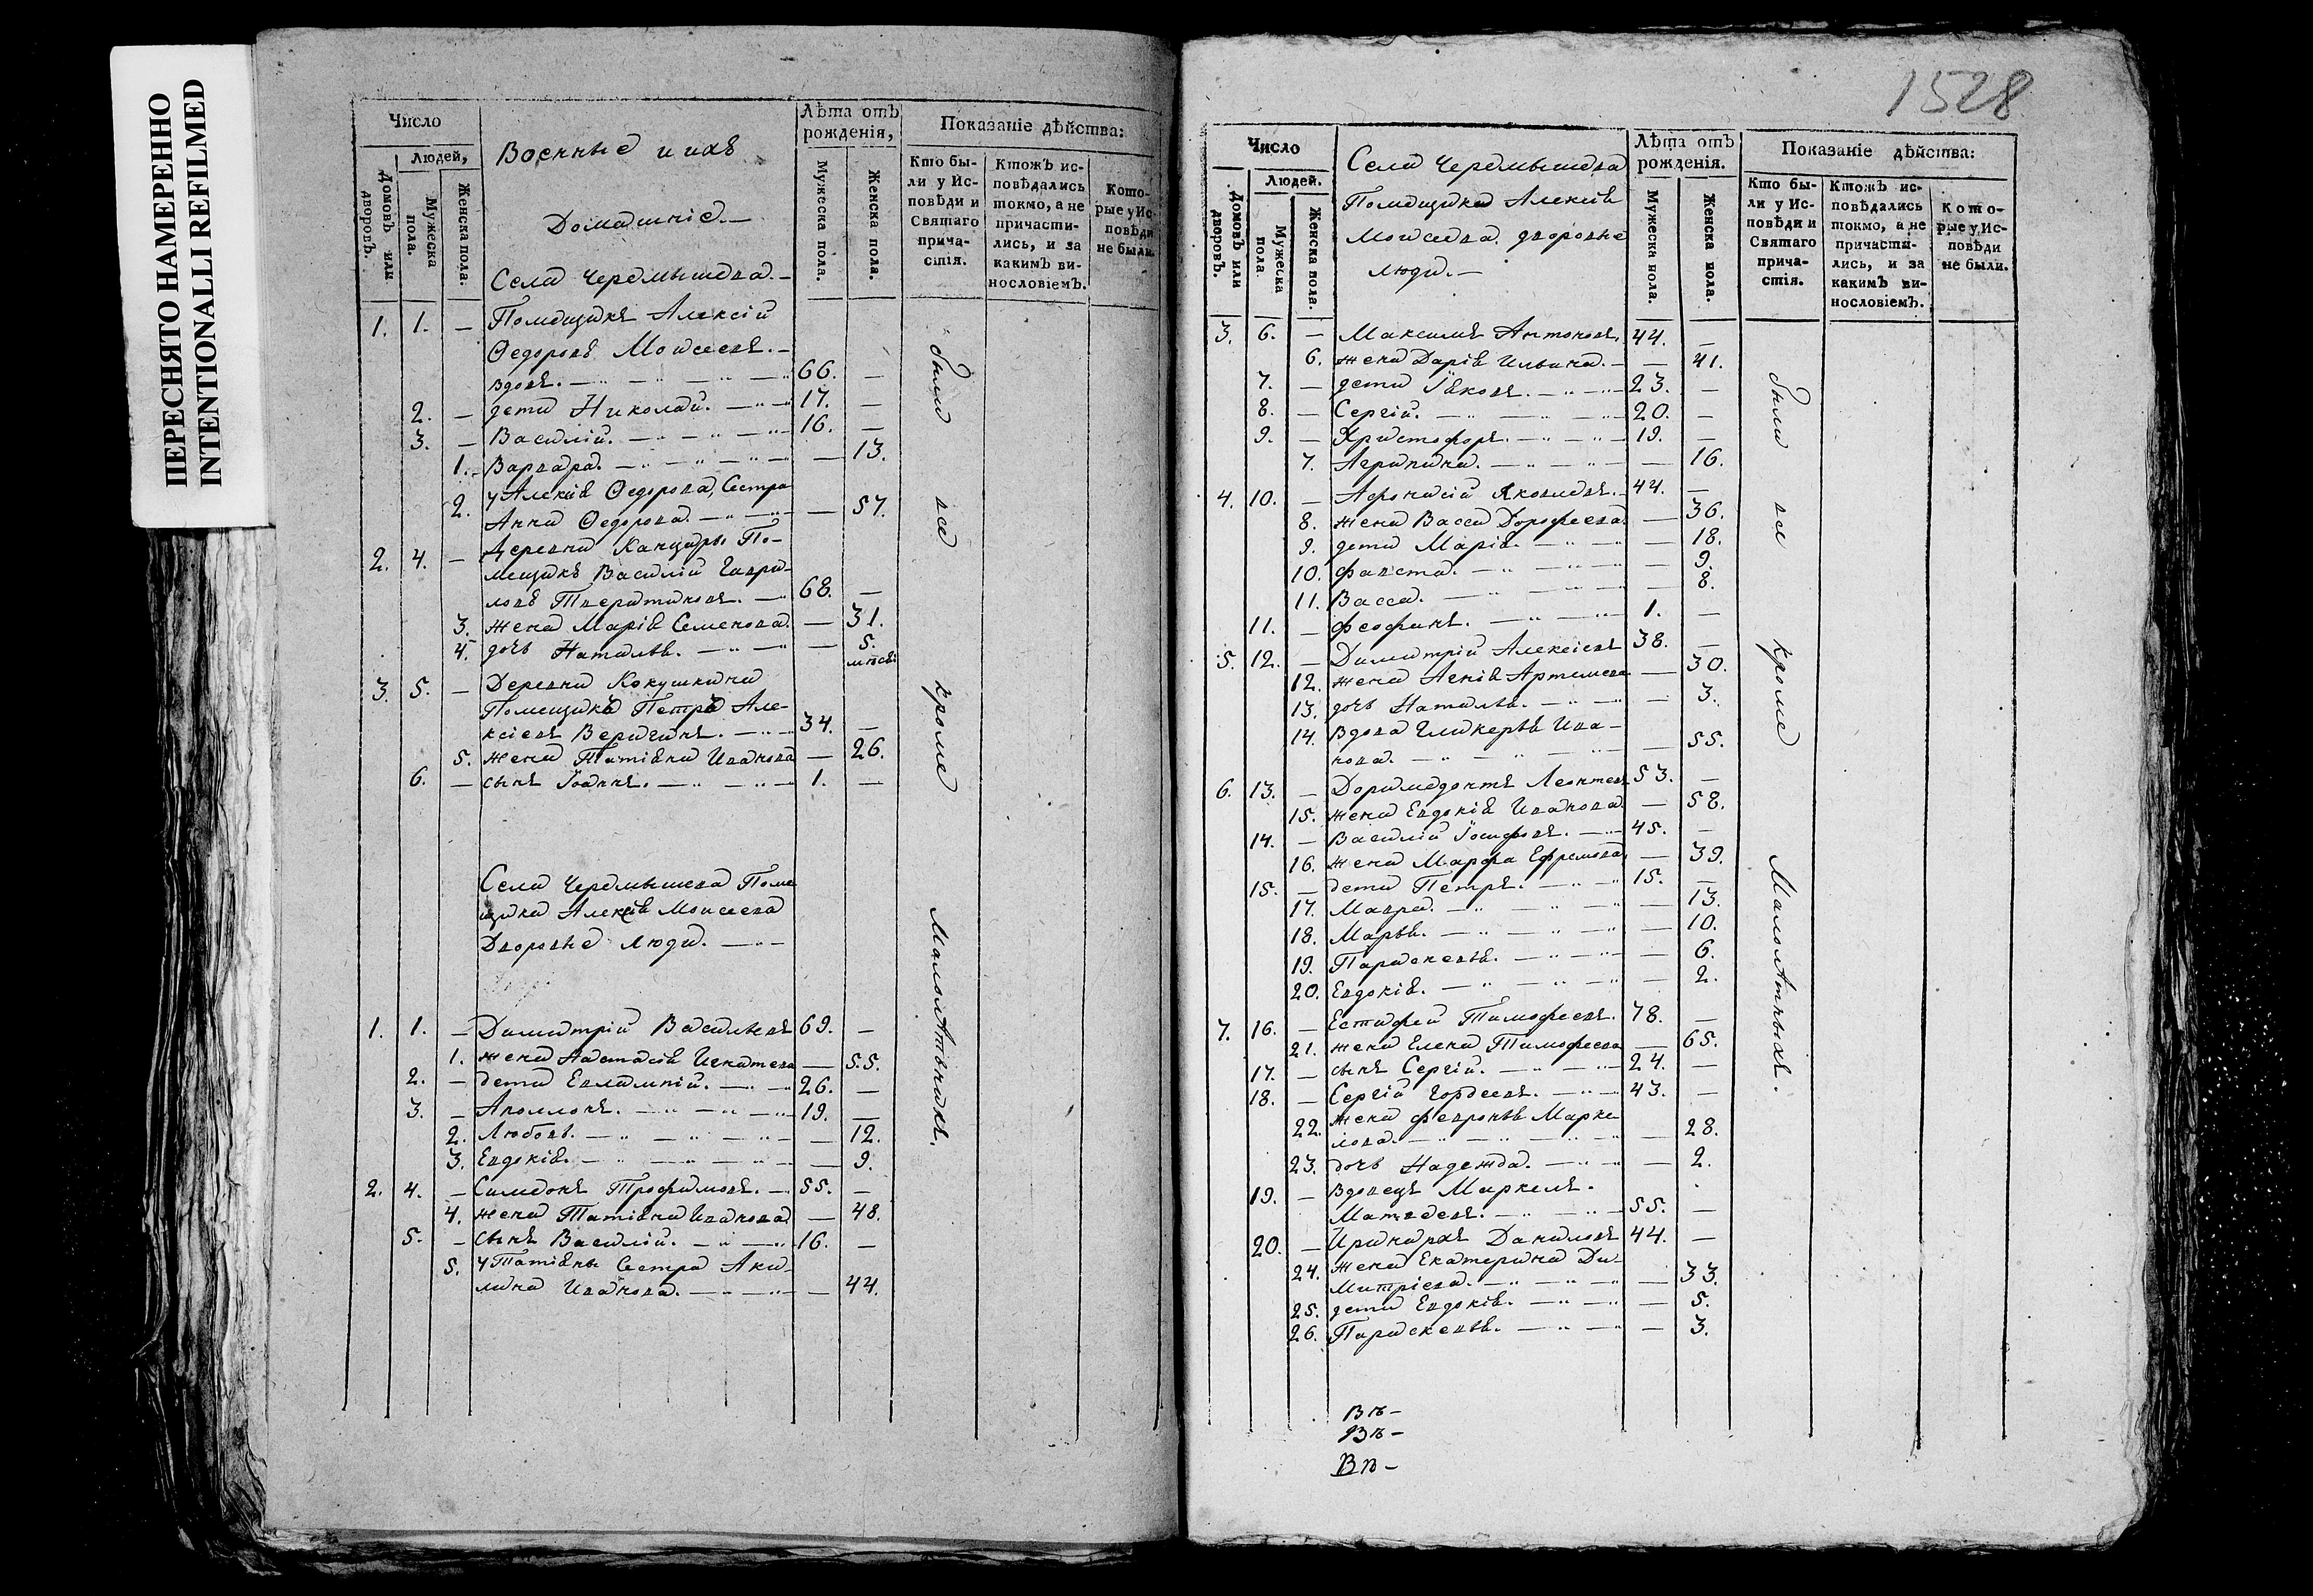 ПЕРЕСНЯТО НАМЕРЕННО
INTENTIONALLI REFILMED
Число
Людей,
Домовъ или дворовъ.
Мужеска пола.
Женска пола.
Военные и ихъ
Домашніе.—
Лѣта отъ рожденія,
Мужеска пола.
Женска пола.
Показаніе дѣйства:
Кто были у Исповѣди и Святаго причастія.
Ктожъ исповѣдались токмо, а не причастились, и за какимъ винословіемъ.
Которые у Исповѣди не были.
Села Черемышева.—
1. 1. — Помещикъ Алексій
Ѳедоровъ Моисеевъ.—
вдовъ. 66. —
2. — дети Николай. 17. —
3. — Василій. 16. —
1. Варвара. — 13.
2. у Алексія Ѳедорова, Сестра
Анна Ѳедорова. — 57.
2. 4. — Деревни Канцыры По-
мещикъ Василій Гаври-
ловъ Тверитиновъ. 68. —
3. жена Марія Семенова. — 31.
4. дочь Наталья. — 5.
месяц
3. 5. — Деревни Кокушкина
Помещикъ Петръ Але-
ксіевъ Веригинъ. 34. —
5. жена Татіана Иванова — 26.
6. — сынъ Іоаннъ. 1. —
Села Черемышева Поме
щика Алексія Моисеева
Дворовые люди.
1. 1. — Димитрій Васильевъ 69. —
1. жена Настасія Игнатева — 55.
2. — дети Евлампій. 26. —
3. — Аполлонъ. 19. —
2. Любовь. — 12.
3. Евдокія. — 9.
2. 4. — Симеонъ Трофимовъ. 55. —
4. жена Татіана Иванова — 48.
5. — сынъ Василій. 16. —
5. у Татіаны Сестра Аку-
лина Иванова. — 44.
были все кроме Малолѣтныхъ.
1528
Число
Людей.
Домовъ или дворовъ.
Мужеска пола.
Женска пола.
Села Черемышева
Помещика Алексія
Моисеева дворовые
люди.—
Лѣта отъ рожденія.
Мужеска пола.
Женска пола.
Показаніе дѣйства:
Кто были у Исповѣди и Святаго причастія.
Ктожъ исповѣдались токмо, а не причастились, и за какимъ винословіемъ.
Которые у Исповѣди не были.
3. 6. — Максимъ Антоновъ. 44. —
6. жена Дарія Ильина. — 41.
7. — дети Іаковъ. 23. —
8. — Сергій. 20. —
9. — Христофоръ. 19. —
7. Агрипина. — 16.
4. 10. — Афонасій Яковлевъ. 44. —
8. жена Васса Дорофеева. — 36.
9. дети Марія. — 18.
10. Фавста. — 9.
11. Васса. — 8.
11. — Феофанъ. 1. —
5. 12. — Димитрій Алексіевъ 38. —
12. жена Ксенія Артемева — 30.
13. дочь Наталья. — 3.
14. Вдова Гликерья Ива-
нова. — 55.
6. 13. — Доримедонтъ Леонтев 53. —
15. жена Евдокія Иванова. — 58.
14. — Василій Іосифовъ. 45. —
16. жена Марфа Ефремова. — 39.
15. — дети Петръ. 15. —
17. Мавра. — 13.
18. Марья. — 10.
19. Параскевья. — 6.
20. Евдокія. — 2.
7. 16. — Естафей Тимофеевъ. 78. —
21. жена Елена Тимофеева — 65.
17. — сынъ Сергій. 24. —
18. — Сергій Гордеевъ. 43. —
22. жена Февронья Марке-
лова. — 28.
23. дочь Надежда. — 2.
19. — Вдовецъ Маркелъ.
Матвеевъ. 55. —
20. — Иринархъ Даниловъ 44. —
24. жена Екатерина Ди-
митріева. — 33.
25. дети Евдокія. — 5.
26. Параскевья. — 3.
были все кроме Малолѣтныхъ.